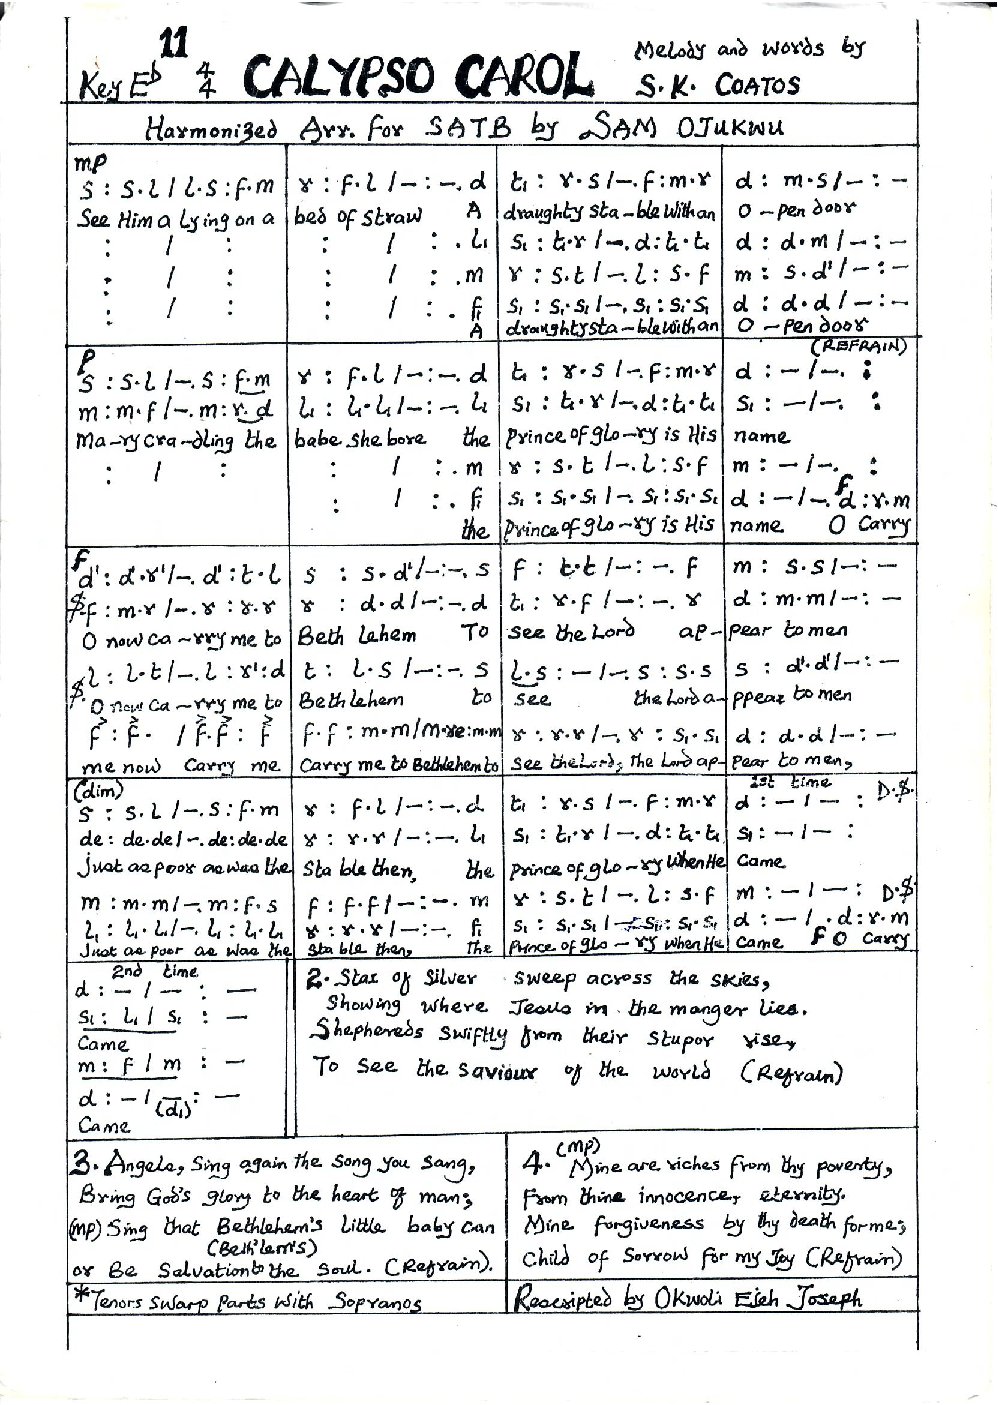 11
Key E♭ 4/4 CALYPSO CAROL Melody and words by
S.K. COATOS
Harmonized Arr. for SATB by SAM OJUKWU
mp
s : s.l / l.s : f.m | r : f.l / – : –. d | t₁ : r.s / –. f : m.r | d : m.s / – : –
See Him a Lying on a | bed of straw A | draughty sta – ble with an | O – pen door
: / : | : / : . l₁ | s₁ : t₁.r / –. d : t₁.t₁ | d : d.m / – : –
: / : | : / : .m | r : s.t / –. l : s.f | m : s.d' / – : –
: / : | : / : . f₁ | s₁ : s₁.s₁ / –. s₁ : s₁.s₁ | d : d.d / – : –
A | draughty sta – ble with an | O – pen door
p (REFRAIN)
s : s.l / –. s : f.m | r : f.l / – : –. d | t₁ : r.s / –. f : m.r | d : – / –. :
m : m.f / –. m : r.d | l₁ : l₁.l₁ / – : –. l₁ | s₁ : t₁.r / –. d : t₁.t₁ | s₁ : – / –. :
Ma – ry cra – dling the | babe she bore the | Prince of glo – ry is His | name
: / : | : / : . m | r : s.t / –. l : s.f | m : – / –. :
: / : . f₁ | s₁ : s₁.s₁ / –. s₁ : s₁.s₁ | d : – / –. f d : r.m
the | Prince of glo – ry is His | name O Carry
f
d' : d'.r' / –. d' : t.l | s : s.d' / – : –. s | f : t.t / – : –. f | m : s.s / – : –
$ f : m.r / –. r : r.r | r : d.d / – : –. d | t₁ : r.f / – : –. r | d : m.m / – : –
O now ca – rry me to | Beth lehem To | see the Lord ap – | pear to men
$ l : l.t / –. l : r' : d | t : l.s / – : –. s | l.s : – / –. s : s.s | s : d'.d' / – : –
O now ca – rry me to | Bethlehem to | see the Lord a – | ppear to men
f : f. / f.f : f | f.f : m.m / m.re : m.m | r : r.r / –. r : s₁.s₁ | d : d.d / – : –
me now Carry me | Carry me to Bethlehem to | see the Lord, the Lord ap – | pear to men,
(dim) 1st time
s : s.l / –. s : f.m | r : f.l / – : –. d | t₁ : r.s / –. f : m.r | d : – / – : D.$.
de : de.de / –. de : de.de | r : r.r / – : –. l₁ | s₁ : t₁.r / –. d : t₁.t₁ | s₁ : – / – :
Just as poor as was the | Sta ble then, the | Prince of glo – ry When He | Came
m : m.m / –. m : f.s | f : f.f / – : –. m | r : s.t / –. l : s.f | m : – / – : D.$
l₁ : l₁.l₁ / –. l₁ : l₁.l₁ | r : r.r / – : –. f₁ | s₁ : s₁.s₁ / –. s₁ : s₁.s₁ | d : – / . d : r.m
Just as poor as was the | sta ble then, the | Prince of glo – ry When He | Came f O Carry
2nd time
d : – / – : –
s₁ : l₁ / s₁ : –
Came
m : f / m : –
d : – / – (d₁) : –
Came
2. Star of Silver sweep across the skies,
Showing where Jesus in the manger lies.
Shephereds swiftly from their stupor rise,
To See the saviour of the world (Refrain)
3. Angels, Sing again the song you sang,
Bring God's glory to the heart of man;
(mp) Sing that Bethlehem's little baby can
(Beth'lem's)
or Be Salvation to the soul. (Refrain).
(mp)
4. Mine are riches from thy poverty,
From thine innocence, eternity.
Mine forgiveness by thy death for me;
Child of Sorrow for my Joy (Refrain)
*Tenors Swarp Parts with Sopranos
Rescripted by OKwoli Ejeh Joseph